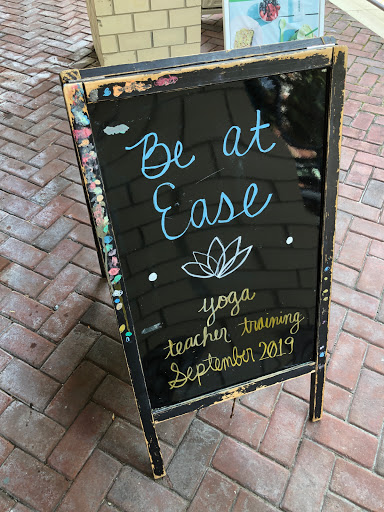 Be at
Ease
yoga
teacher training
September 2019